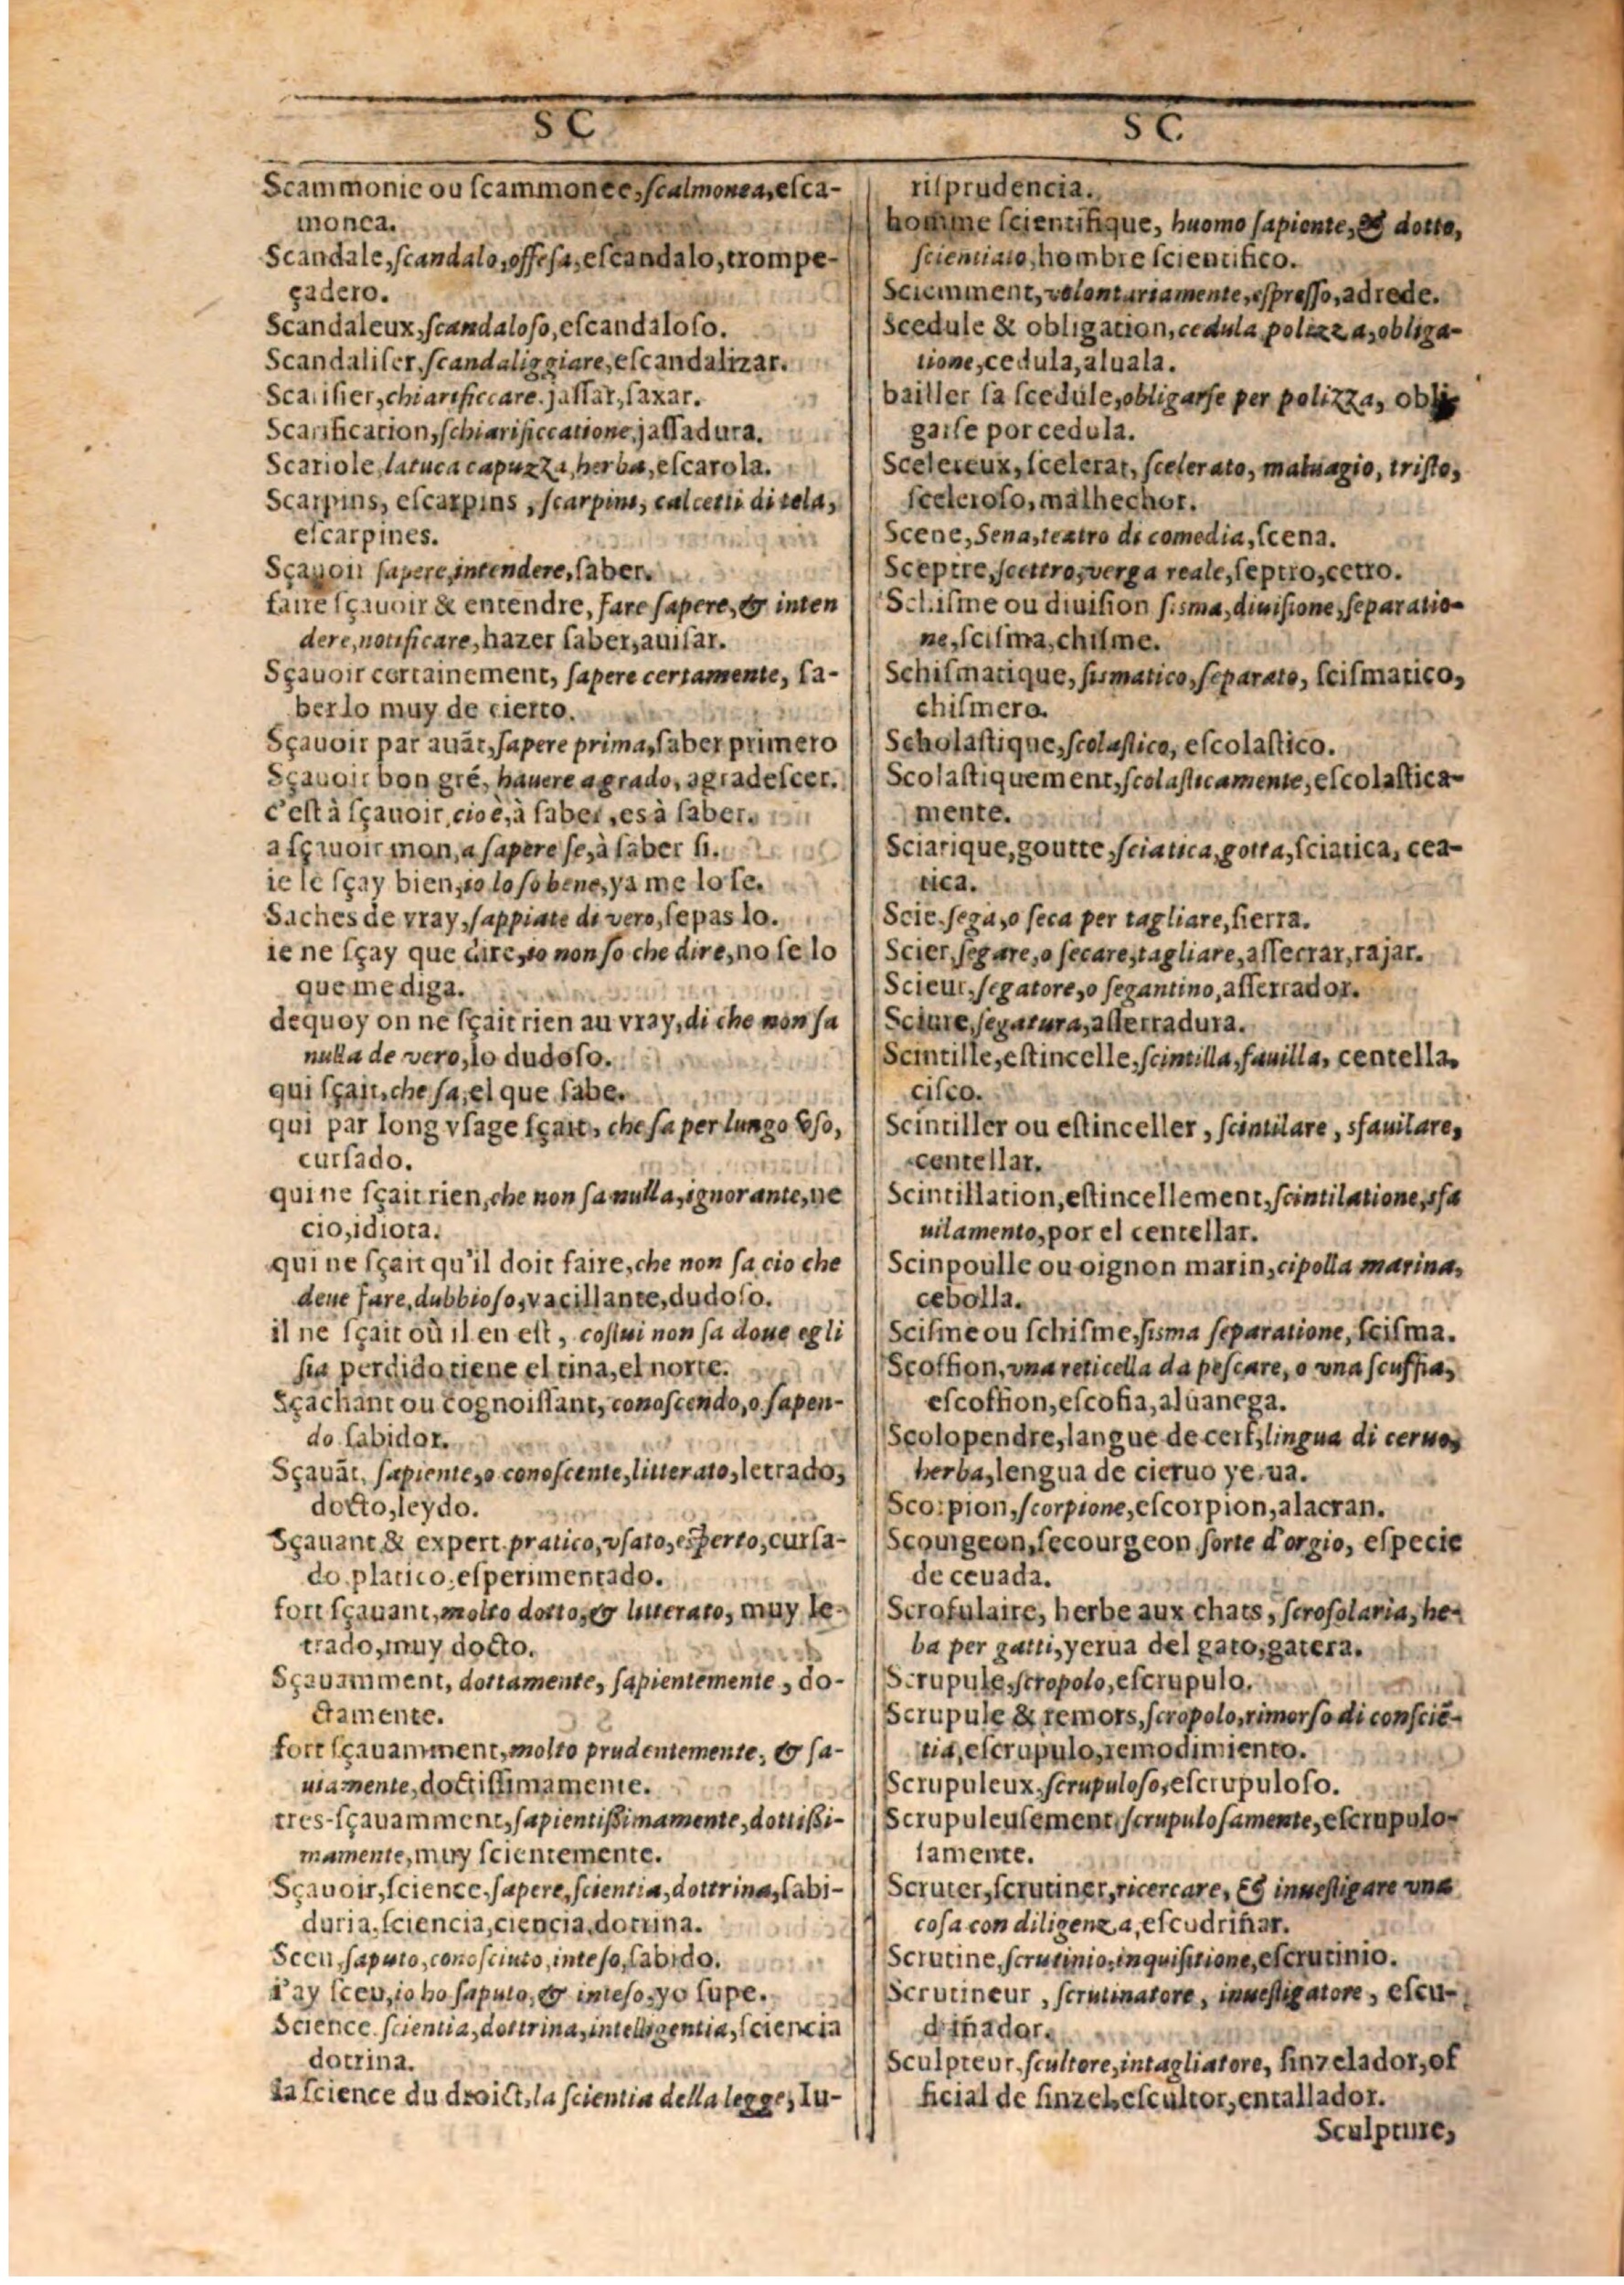 S C
Scammonie ou ſcammonee, ſcalmonea, eſca-
monea.
Scandale, ſcandalo, offeſa, eſcandalo, trompe-
çadero.
Scandaleux, ſcandaloſo, eſcandaloſo.
Scandaliſer, ſcandaliggiare, eſcandalizar.
Scarifier, chiarificcare. jaſſar, ſaxar.
Scarification, ſchiarificcatione, jaſſadura.
Scariole, latuca capuzza, herba, eſcarola.
Scarpins, eſcarpins, ſcarpini, calcetti di tela,
eſcarpines.
Sçauoir ſapere, intendere, ſaber.
faire ſçauoir & entendre, fare ſapere, & inten
dere, notificare, hazer ſaber, auiſar.
Sçauoir certainement, ſapere certamente, ſa-
berlo muy de cierto.
Sçauoir par auãt, ſapere prima, ſaber primero
Sçauoir bon gré, hauere agrado, agradeſcer.
c'eſt à ſçauoir, cio è, à ſaber, es à ſaber.
a ſçauoir mon, a ſapere ſe, à ſaber ſi.
ie le ſçay bien, io lo ſo bene, ya me lo ſe.
Saches de vray, ſappiate di vero, ſepas lo.
ie ne ſçay que dire, io non ſo che dire, no ſe lo
que me diga.
dequoy on ne ſçait rien au vray, di che non ſa
nulla de vero, lo dudoſo.
qui ſçait, che ſa, el que ſabe.
qui par long vſage ſçait, che ſa per lungo vſo,
curſado.
qui ne ſçait rien, che non ſa nulla, ignorante, ne
cio, idiota.
qui ne ſçait qu'il doit faire, che non ſa cio che
deue fare, dubbioſo, vacillante, dudoſo.
il ne ſçait où il en eſt, coſtui non ſa doue egli
ſia perdido tiene el tina, el norte.
Sçachant ou cognoiſſant, conoſcendo, o ſapen-
do ſabidor.
Sçauãt, ſapiente, o conoſcente, litterato, letrado,
docto, leydo.
Sçauant & expert. pratico, vſato, eſperto, curſa-
do. platico, eſperimentado.
fort ſçauant, molto dotto, & litterato, muy le-
trado, muy docto.
Sçauamment, dottamente, ſapientemente, do-
ctamente.
fort ſçauamment, molto prudentemente, & ſa-
uiamente, doctiſſimamente.
tres-ſçauamment, ſapientiſſimamente, dottiſſi-
mamente, muy ſcientemente.
Sçauoir, ſcience, ſapere, ſcientia, dottrina, ſabi-
duria, ſciencia, ciencia, dotrina.
Sceu, ſaputo, conoſciuto, inteſo, ſabido.
I'ay ſceu, io ho ſaputo, & inteſo, yo ſupe.
Science. ſcientia, dottrina, intelligentia, ſciencia
dotrina.
la ſcience du droict, la ſcientia della legge, Iu-
S C
riſprudencia.
homme ſcientifique, huomo ſapiente, & dotto,
ſcientiato, hombre ſcientifico.
Sciemment, volontariamente, eſpreſſo, adrede.
Scedule & obligation, cedula polizza, obliga-
tione, cedula, aluala.
bailler ſa ſcedule, obligarſe per polizza, obli
garſe por cedula.
Scelereux, ſcelerat, ſcelerato, maluagio, triſto,
ſceleroſo, malhechor.
Scene, Sena, teatro di comedia, ſcena.
Sceptre, ſcettro, verga reale, ſeptro, cetro.
Schiſme ou diuiſion ſiſma, diuiſione, ſeparatio-
ne, ſciſma, chiſme.
Schiſmatique, ſiſmatico, ſeparato, ſciſmatico,
chiſmero.
Scholaſtique, ſcolaſtico, eſcolaſtico.
Scolaſtiquement, ſcolaſticamente, eſcolaſtica-
mente.
Sciatique, goutte, ſciatica, gotta, ſciatica, cea-
tica.
Scie. ſega, o ſeca per tagliare, ſierra.
Scier, ſegare, o ſecare, tagliare, aſſerrar, rajar.
Scieur, ſegatore, o ſegantino, aſſerrador.
Sciure, ſegatura, aſſerradura.
Scintille, eſtincelle, ſcintilla, fauilla, centella,
ciſco.
Scintiller ou eſtinceller, ſcintilare, sfauilare,
centellar.
Scintillation, eſtincellement, ſcintilatione, sfa
uilamento, por el centellar.
Scinpoulle ou oignon marin, cipolla marina,
cebolla.
Sciſme ou ſchiſme, ſiſma ſeparatione, ſciſma.
Scoffion, vna reticella da peſcare, o vna ſcuffia,
eſcoffion, eſcofia, aluanega.
Scolopendre, langue de cerf, lingua di ceruo,
herba, lengua de cieruo yerua.
Scorpion, ſcorpione, eſcorpion, alacran.
Scourgeon, ſecourgeon ſorte d'orgio, eſpecie
de ceuada.
Scrofulaire, herbe aux chats, ſcrofolaria, he-
ba per gatti, yerua del gato, gatera.
Scrupule, ſcropolo, eſcrupulo.
Scrupule & remors, ſcropolo, rimorſo di conſciẽ-
tia, eſcrupulo, remodimiento.
Scrupuleux, ſcrupuloſo, eſcrupuloſo.
Scrupuleuſement, ſcrupuloſamente, eſcrupulo-
ſamente.
Scruter, ſcrutiner, ricercare, & inueſtigare vna
coſa con diligenza, eſcudriñar.
Scrutine, ſcrutinio, inquiſitione, eſcrutinio.
Scrutineur, ſcrutinatore, inueſtigatore, eſcu-
driñador.
Sculpteur, ſcultore, intagliatore, ſinzelador, of
ficial de ſinzel, eſcultor, entallador.
Sculpture,